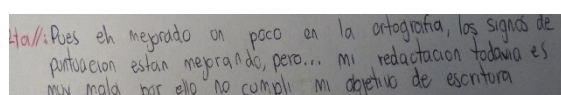 Hall: Pues eh mejorado un poco en la ortografia, los signos de
puntuacion estan mejorando, pero... mi redactacion todavia es
muy mala por ello no cumpli mi objetivo de escritura